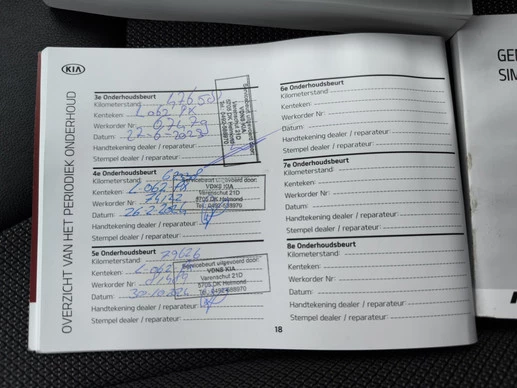 KIA
OVERZICHT VAN HET PERIODIEK ONDERHOUD
3e Onderhoudsbeurt
Kilometerstand: 47658
Kenteken: L062PX
Werkorder Nr:
Datum:
Handtekening dealer / reparateur:
Stempel dealer / reparateur:
Servicebeurt uitgevoerd door:
VDNS KIA
Varenschut 21D
5705 DK Helmond
4e Onderhoudsbeurt
Kilometerstand:
Kenteken: L062 PX
Werkorder Nr:
Datum: 26-2-2024
Handtekening dealer / reparateur:
Stempel dealer / reparateur:
Servicebeurt uitgevoerd door:
VDNS KIA
Varenschut 21D
5705 DK Helmond
Tel.: 0492-588970
5e Onderhoudsbeurt
Kilometerstand: 79626
Kenteken: L062
Werkorder Nr:
Datum: 30-10-2024
Handtekening dealer / reparateur:
Stempel dealer / reparateur:
Servicebeurt uitgevoerd door:
VDNS KIA
Varenschut 21D
5705 DK Helmond
Tel.: 0492-588970
6e Onderhoudsbeurt
Kilometerstand:
Kenteken:
Werkorder Nr:
Datum:
Handtekening dealer / reparateur:
Stempel dealer / reparateur:
7e Onderhoudsbeurt
Kilometerstand:
Kenteken:
Werkorder Nr:
Datum:
Handtekening dealer / reparateur:
Stempel dealer / reparateur:
8e Onderhoudsbeurt
Kilometerstand:
Kenteken:
Werkorder Nr:
Datum:
Handtekening dealer / reparateur:
Stempel dealer / reparateur:
18